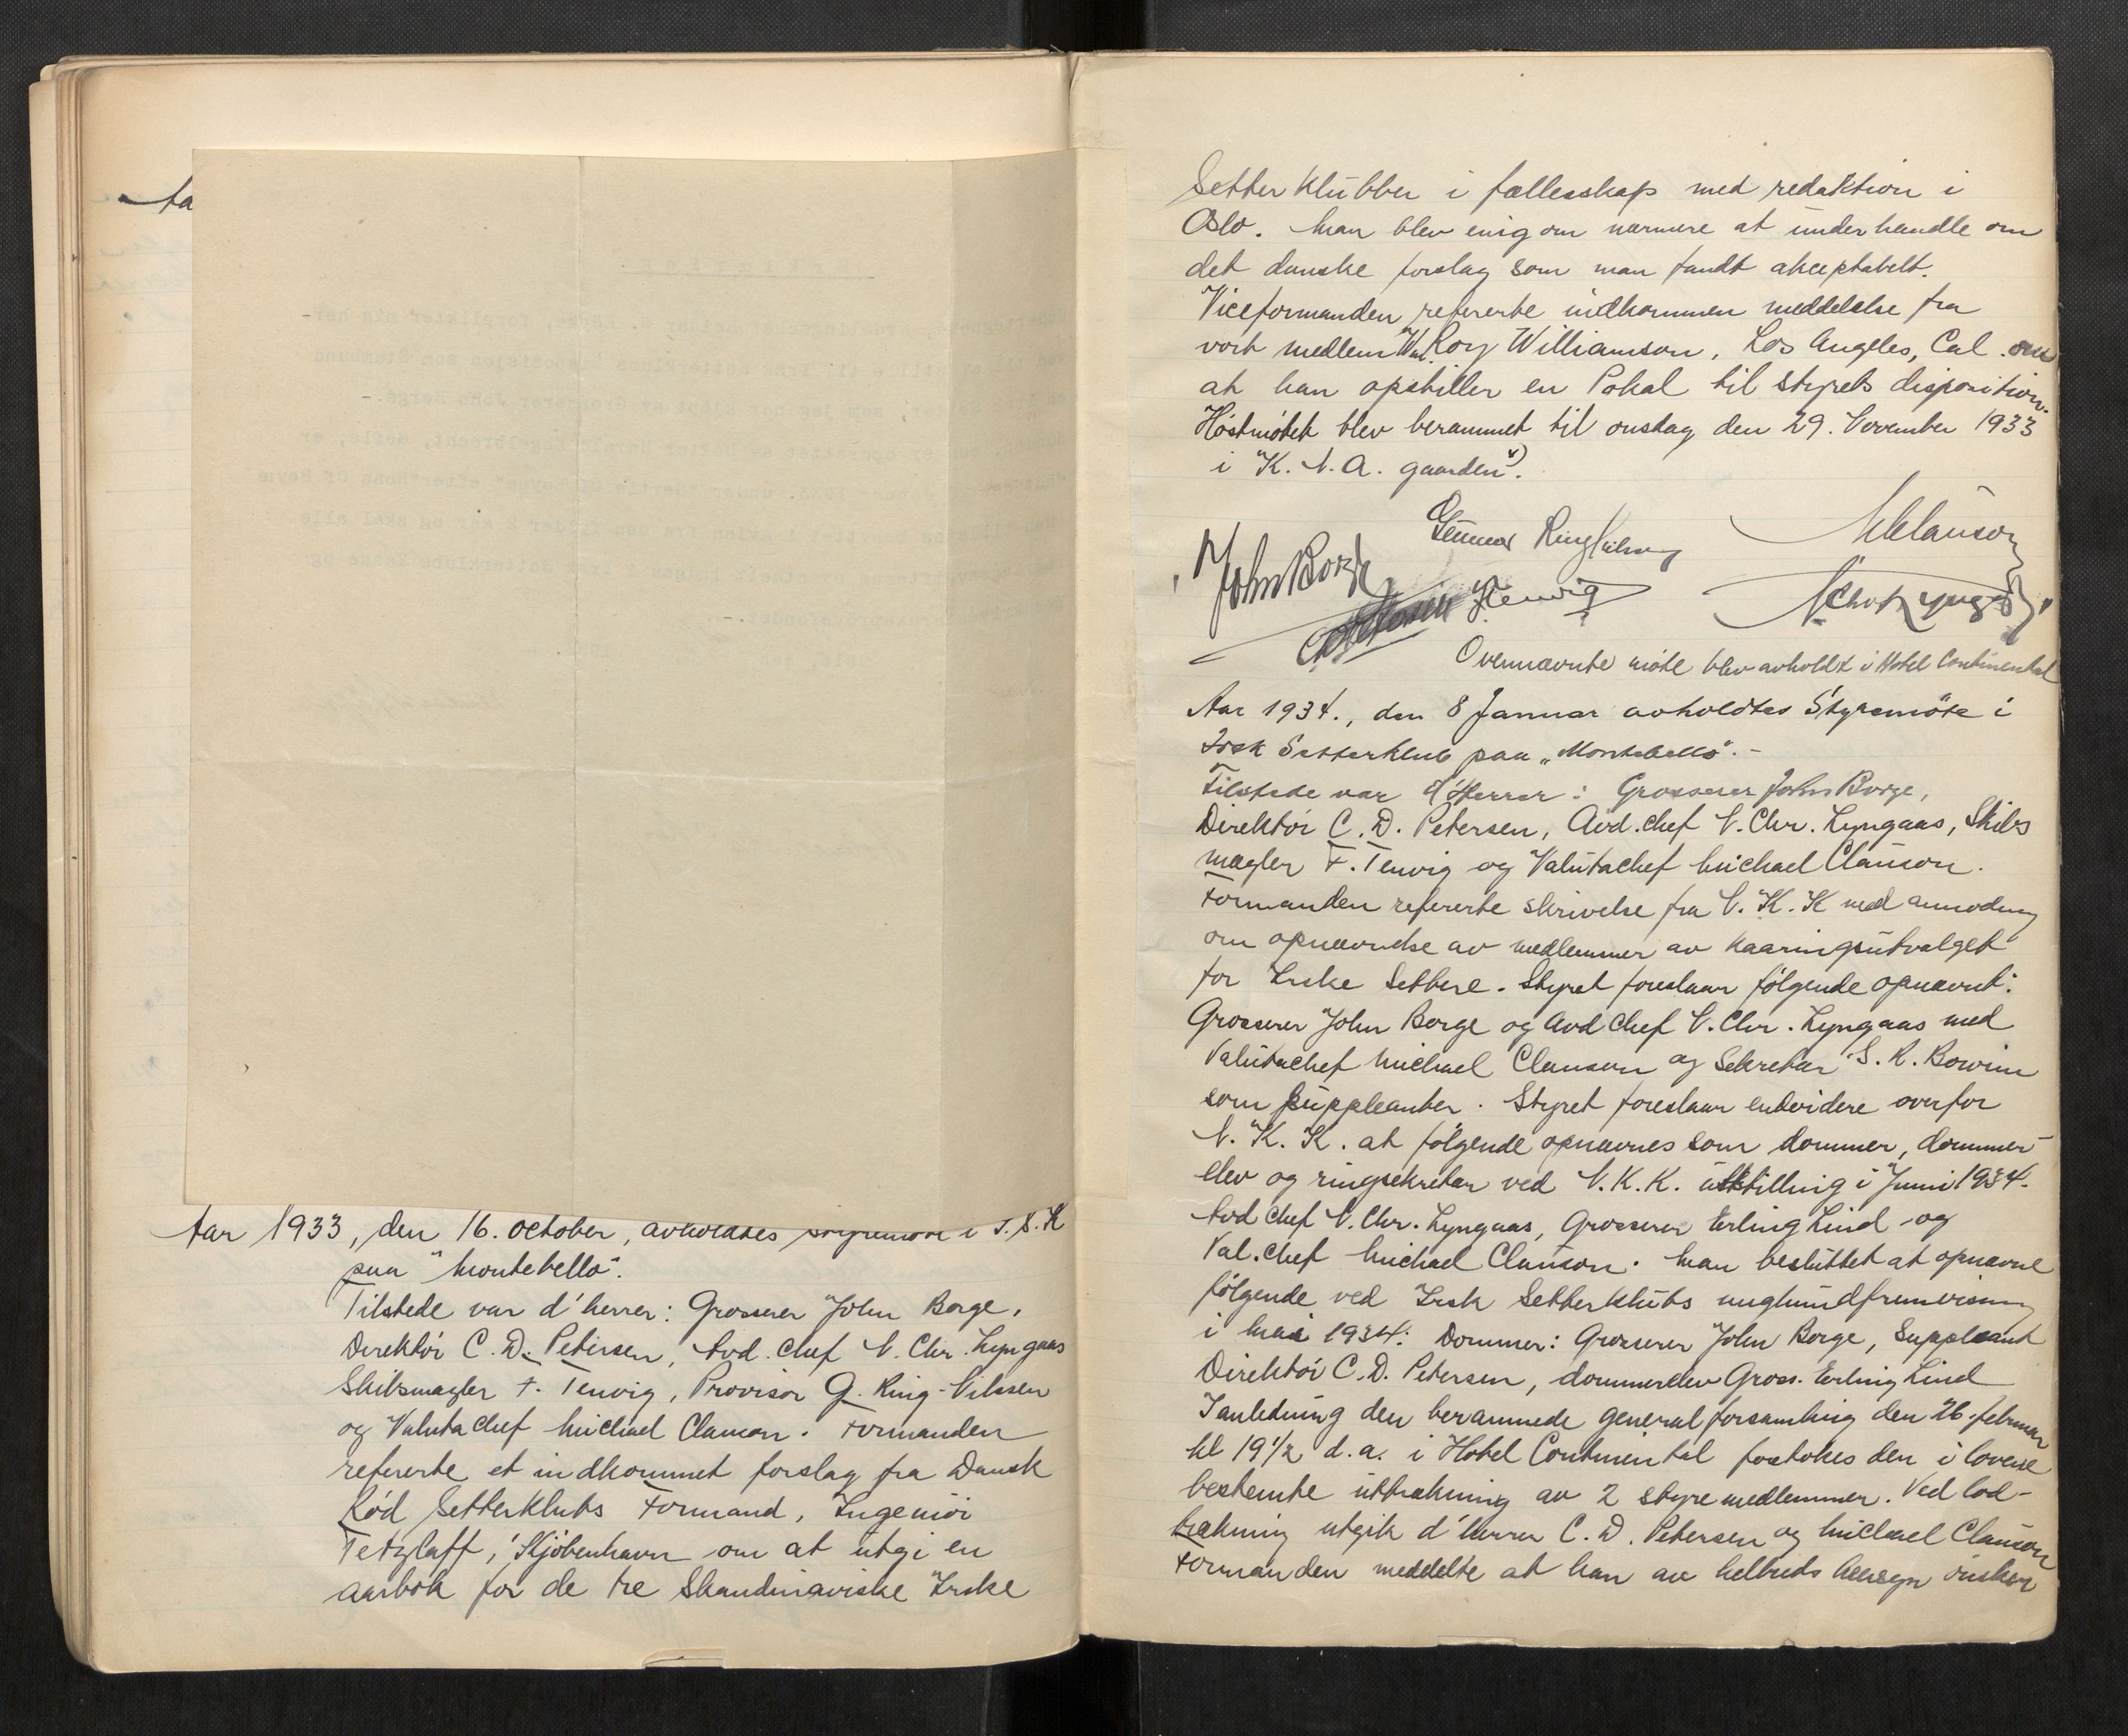 Aar 1933, den 16. October, avholdtes styremøte i I.S.K
paa "Montebello".
Tilstede var d'herrer: Grosserer John Borge,
Direktör C. D. Petersen, Avd. chef N. Chr. Lyngaas
Skibsmægler F. Tenvig, Provisor G. Ring-Nilssen
og Valutachef Michael Clauson. Formanden
refererte et indkommet forslag fra Dansk
Röd Setterklubs Formand, Ingeniör
Tetzlaff, Kjöbenhavn om at utgi en
aarbok for de tre Skandinaviske Irske
Setter Klubber i fællesskap med redaktion i
Oslo. Man blev enig om nærmere at underhandle om
det danske forslag som man fandt akceptabelt.
Viceformanden refererte indkommen meddelelse fra
vort medlem Wm. Roy Williamson, Los Angeles, Cal. om
at han opstiller en Pokal til styrets disposition.
Höstmötet blev berammet til onsdag den 29. November 1933
i "K. N. A. gaarden".
Gunnar Ring Nilssen MClauson
John Borge
CDPetersen F Tenvig N Chr Lyngaas
Ovennævnte möte blev avholdt i Hotel Continental
Aar 1934., den 8 Januar avholdtes Styremöte i
Irsk Setterklub paa „Montebello". -
Tilstede var d'Herrer: Grosserer John Borge,
Direktör C. D. Petersen, Avd. chef N. Chr. Lyngaas, Skibs
mægler F. Tenvig og Valutachef Michael Clauson.
Formanden refererte skrivelse fra N. K. K med anmodning
om opnævndse av medlemmer av Kaaringsutvalget
for Irske Settere. Styret foreslaar fölgende opnævnt:
Grosserer John Borge og Avd chef N. Chr. Lyngaas med
Valutachef Michael Clauson og Sekretær S. R. Bowim
som suppleanter. Styret foreslaar endvidere overfor
N. K. K. at fölgende opnævnes som dommer, dommer-
elev og ringsekretær ved N. K. K. utstilling i Juni 1934.
Avd chef N. Chr. Lyngaas, Grosserer Erling Lind og
Val. chef Michael Clauson. Man besluttet at opnævne
fölgende ved Irsk Setterklubs unghundfremvisning
i Mai 1934: Dommer: Grosserer John Borge, Suppleant
Direktör C. D. Petersen, dommerelev Gross. Erling Lind
I anledning den berammede generalforsamling den 26. februar
kl 19 1/2 d. a. i Hotel Continental foretokes den i lovene
bestemte uttrækning av 2 styremedlemmer. Ved lod-
trækning utgik d'herrer C. D. Petersen og Michael Clauson
Formanden meddelte at han av helbreds hensyn önsker